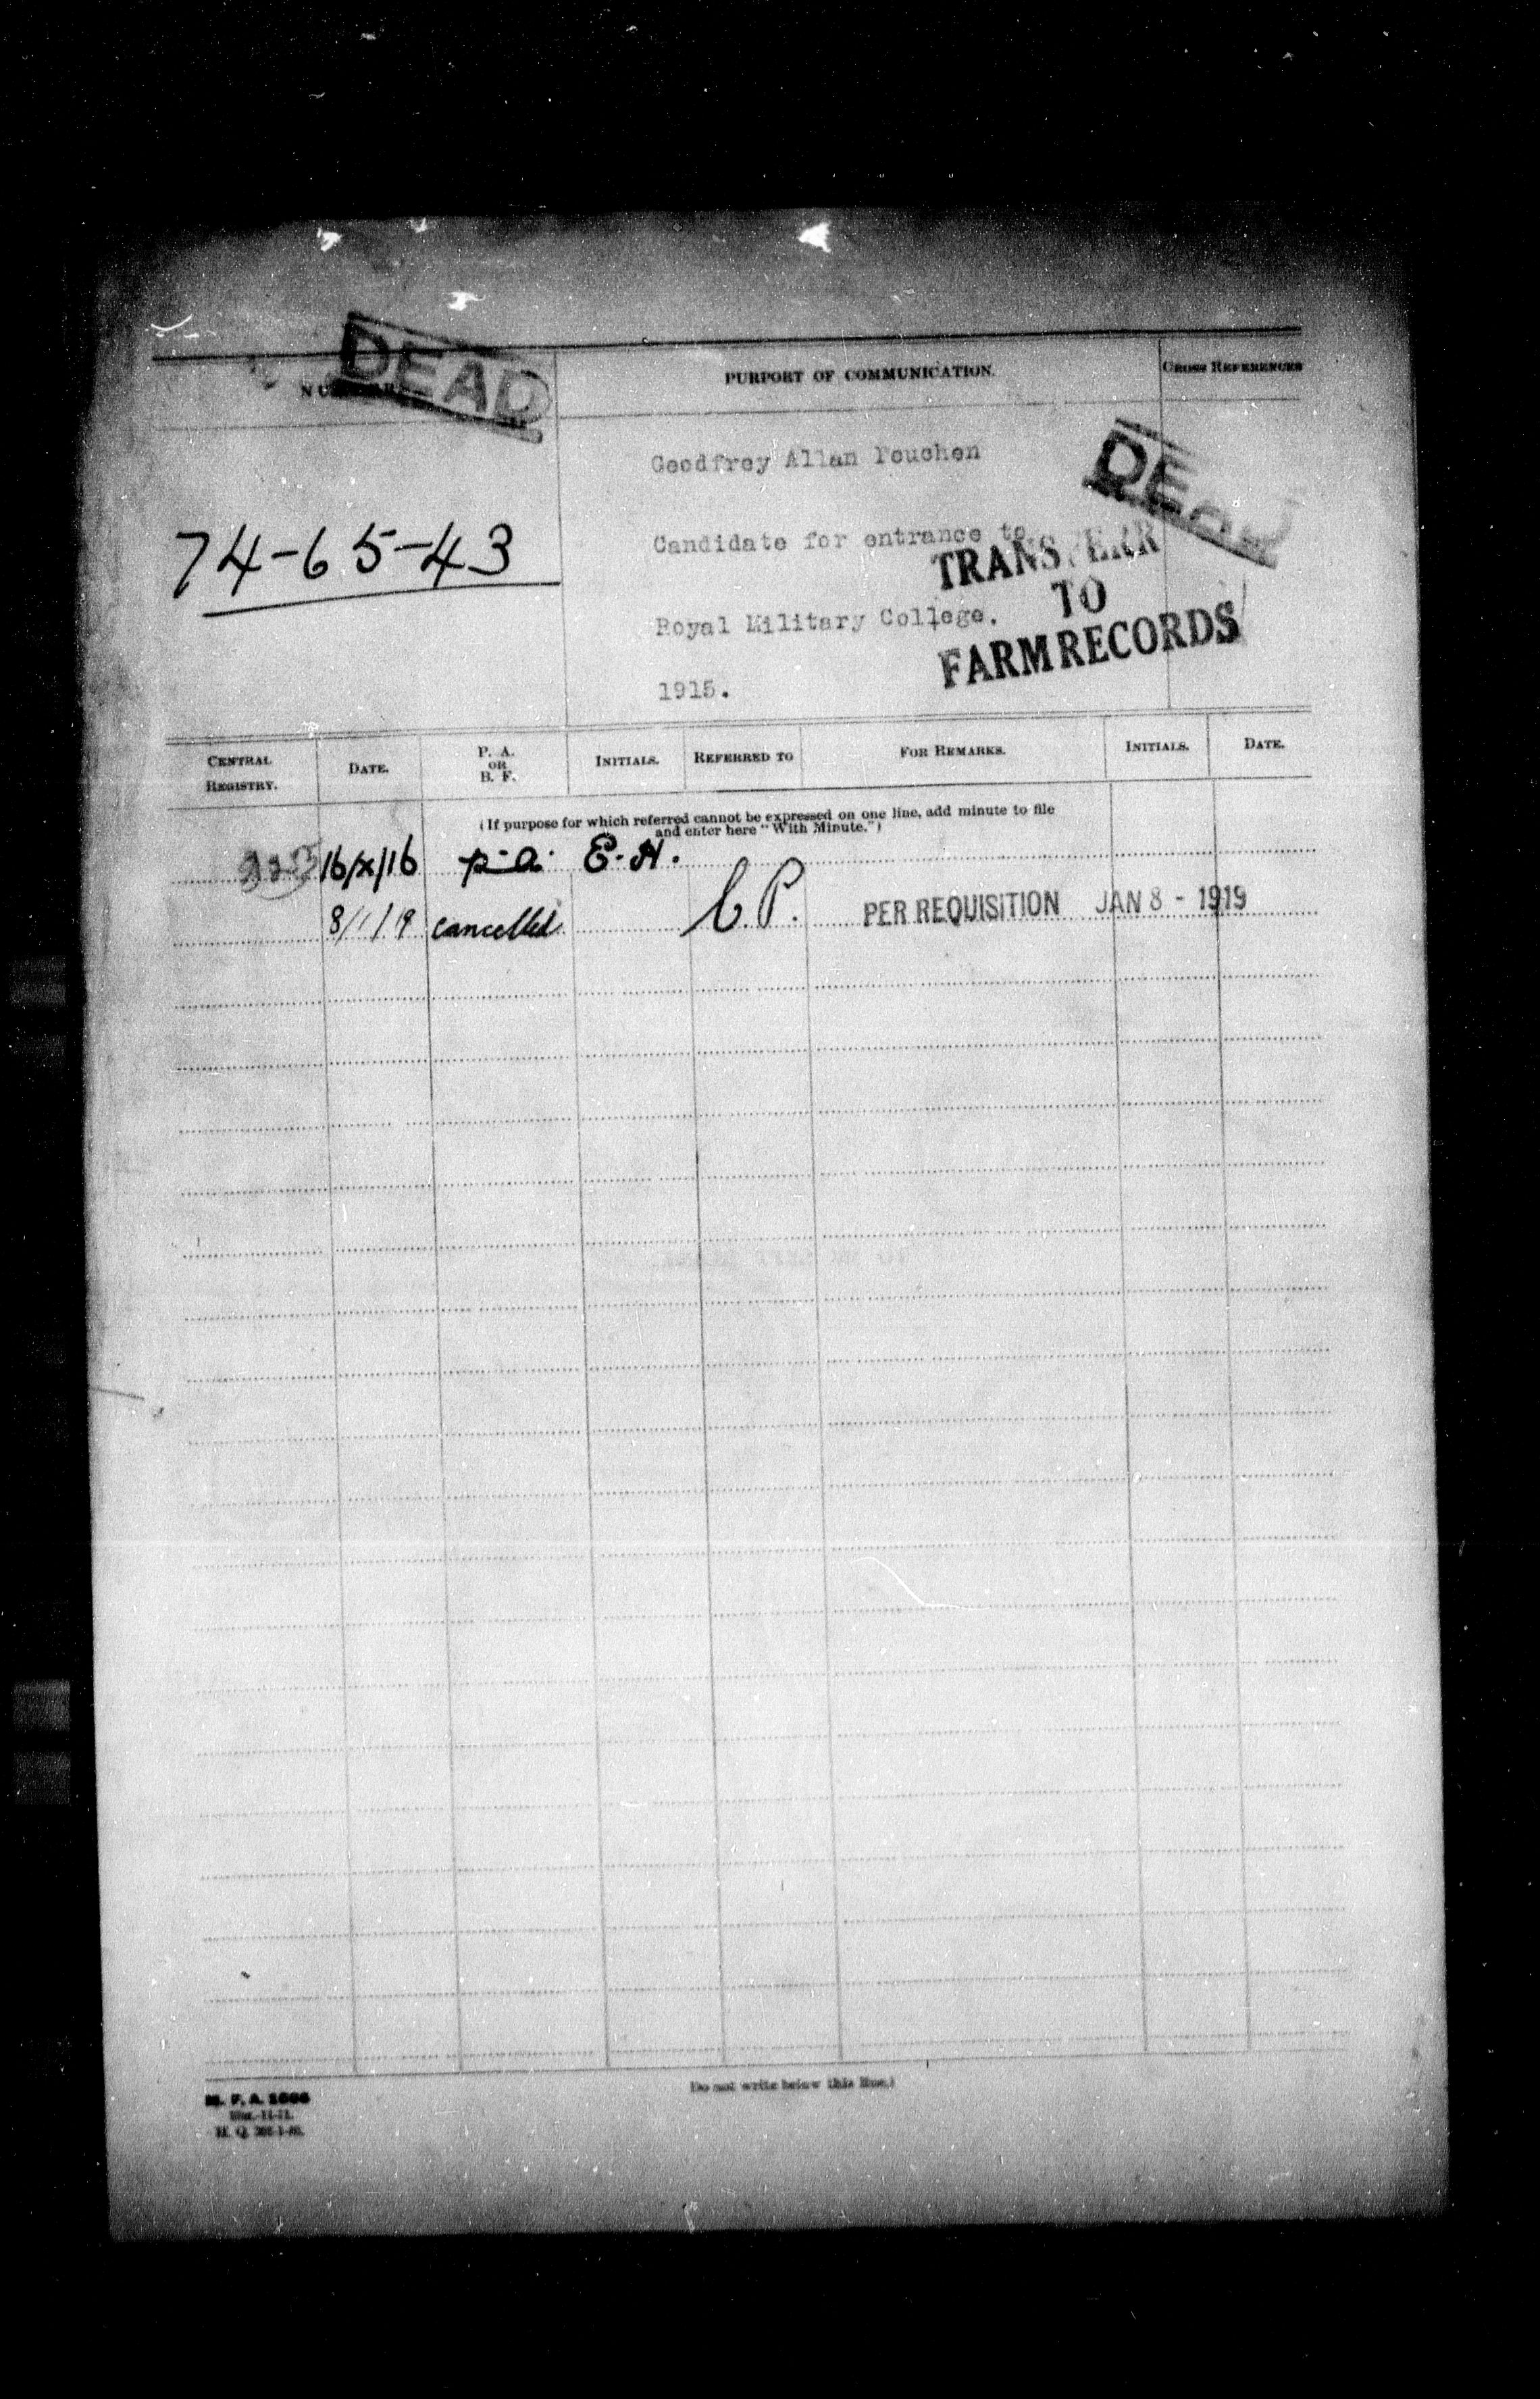 DEAD
PURPORT OF COMMUNICATION.
CROSS REFERENCES
Geodfrey Allan Peuchen
DEAD
74-65-43
Candidate for entrance to
TRANSFERR
TO
Royal Military College.
FARM RECORDS
1915.
CENTRAL REGISTRY.
DATE.
P. A. OR B. F.
INITIALS.
REFERRED TO
FOR REMARKS.
INITIALS.
DATE.
(If purpose for which referred cannot be expressed on one line, add minute to file
and enter here "With Minute.")
16/X/16 p-a. E.H.
8/1/19 cancelled C.P. PER REQUISITION JAN 8 - 1919
(Do not write below this line.)
M. F. A.
H. Q.